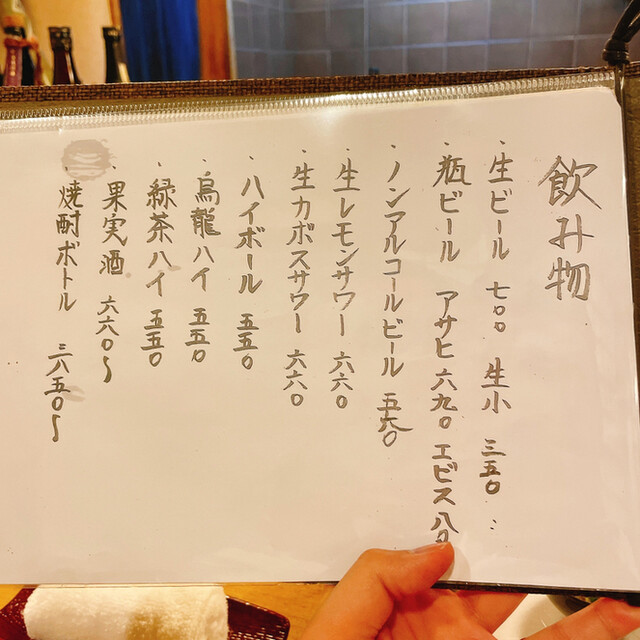 飲み物
・生ビール 七〇〇 生小 三五〇
・瓶ビール アサヒ 六九〇 エビス 八
・ノンアルコールビール 五六〇
・生レモンサワー 六六〇
・生カボスサワー 六六〇
・ハイボール 五五〇
・烏龍ハイ 五五〇
・緑茶ハイ 五五〇
・果実酒 六六〇〜
・焼酎ボトル 三八五〇〜